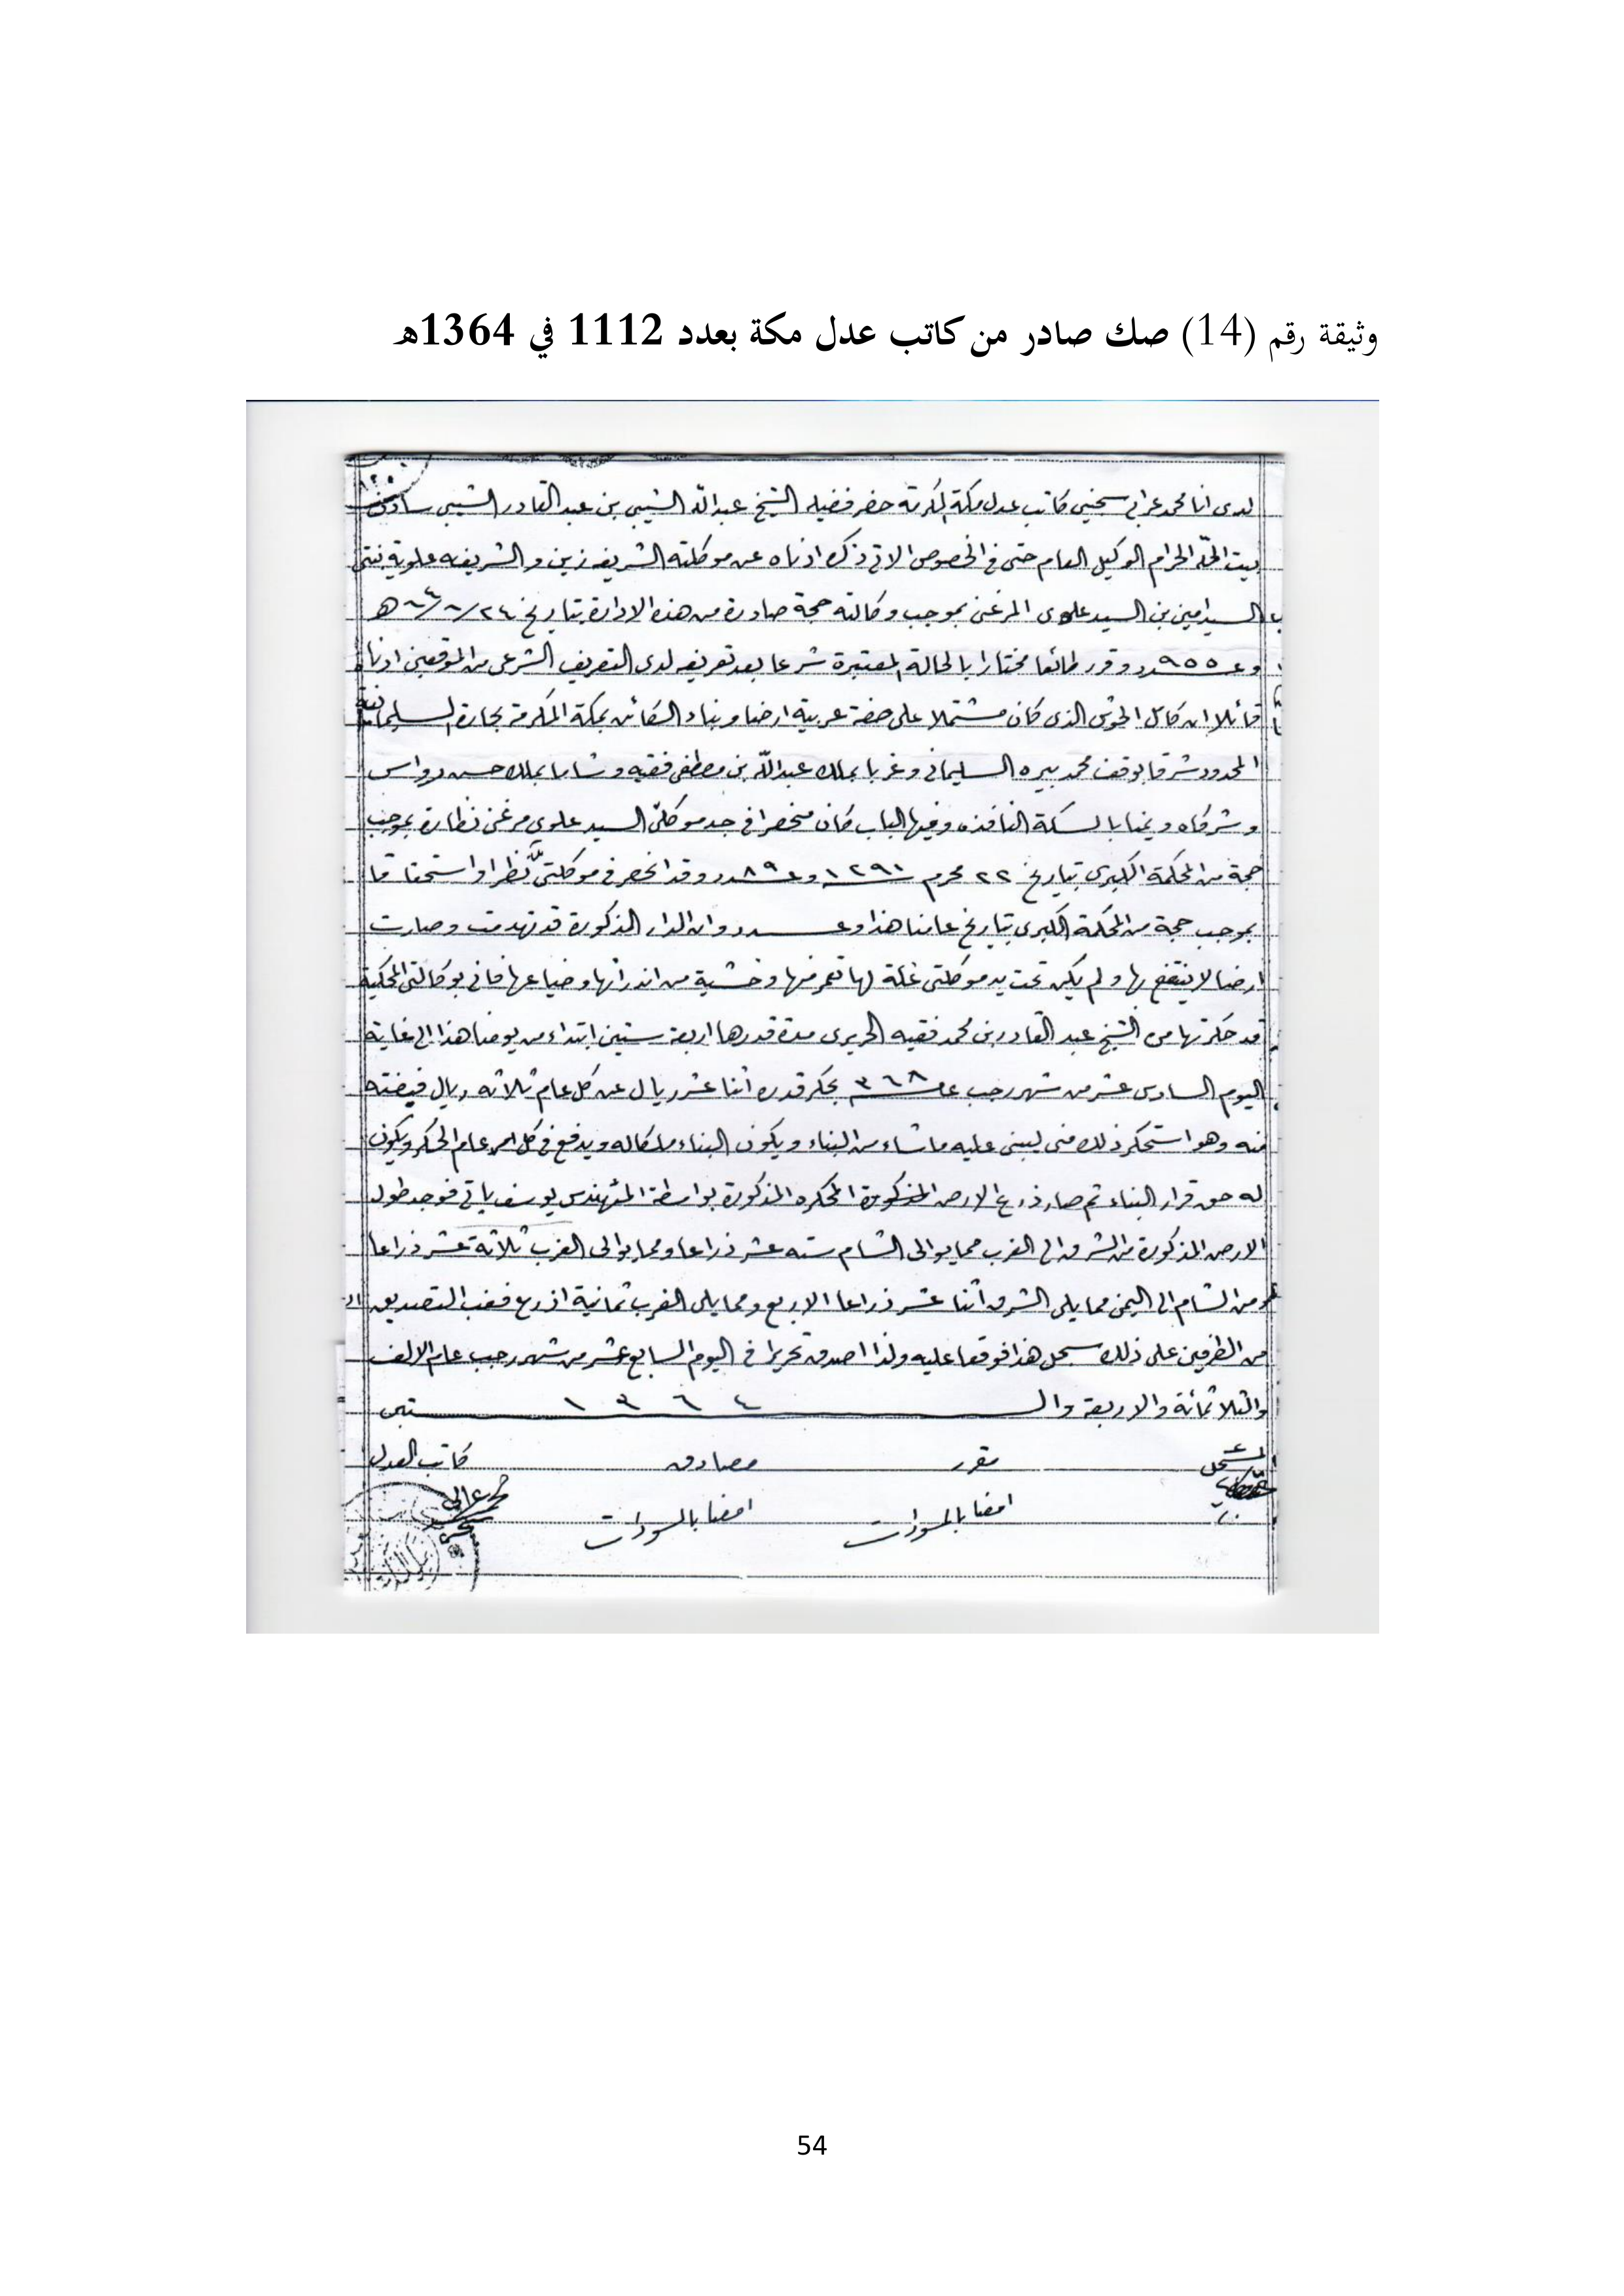 وثيقة رقم (14) صك صادر من كاتب عدل مكة بعدد 1112 في 1364هـ
لدى انا محمد عرابي سجيني كاتب عدل مكة المكرمة حضر فضيلة الشيخ عبدالله الشيبي بن عبد القادر الشيبي سادن
بيت الله الحرام الوكيل العام حتى في الخصوص الاتي ذكره ادناه عن موكلته الشريفه زين والشريفه علوية بنتي
السيد امين بن السيد علوي المرغني بموجب وكالته حجة صادرة من هذه الادارة بتاريخ
وعدد ٩٥٥ وقرر طائعا مختارا بالحالة المعتبرة شرعا بعد تعريفه لدى التعريف الشرعي من الموقعين ادناه
قائلا ان كامل الحوش الذي كان مشتملا على صفة عربية ارضا وبناء الكائن بمكة المكرمة بحارة السليمانية
المحدود شرقا بوقف محمد بيره السليماني وغربا بملك عبدالله بن مصطفى فقيه وشاما بملك حسن رواس
وشركاه ويمنا بالسكة النافذه وفيها الباب كان منحصرا في جد موكلتي السيد علوي مرغني نظارة بموجب
حجة من المحكمة الكبرى بتاريخ ٢٢ محرم ١٢٩١ وعدد ٨٩ وقد انحصر في موكلتي نظرا واستحقاقا
بموجب حجة من المحكمة الكبرى بتاريخ عامنا هذا وعدد وان الدار المذكورة قد تهدمت وصارت
ارضا لا ينتفع بها ولم يكن تحت يد موكلتي غلة لها تعمر منها وخشية من اندراثها وضياعها فاني بوكالتي المحكية
قد حكرتها من الشيخ عبد القادر بن محمد فقيه الحريري مدة قدرها اربعة سنين ابتداء من يومنا هذا الى غاية
اليوم السادس عشر من شهر رجب عام ٣٦٨ بحكر قدره اثنا عشر ريال عن كل عام ثلاثه ريال قبضته
منه وهو استحكر ذلك مني ليبني عليه ما شاء من البناء ويكون البناء ملكا له ويدفع في كل عام الحكر ويكون
له حق قرار البناء ثم صار ذرع الارض المذكورة المحكره المذكورة بواسطة المهندس يوسف فوجد طول
الارض المذكورة من الشرق الى الغرب مما يوالى الشام سته عشر ذراعا ومما يوالى الغرب ثلاثة عشر ذراعا
ومن الشام الى اليمن مما يلي الشرق اثنا عشر ذراعا الا ربع ومما يلي الغرب ثمانية اذرع فغب التصديق
من الطرفين على ذلك سجل هذا فوقعا عليه ولذا اصدق تحريرا في اليوم السابع عشر من شهر رجب عام الالف
والثلاثمائة والاربعة والستين ١٣٦٤
المسجل مقرر مصادق كاتب العدل
امضا بالمسودات امضا بالمسودات
54